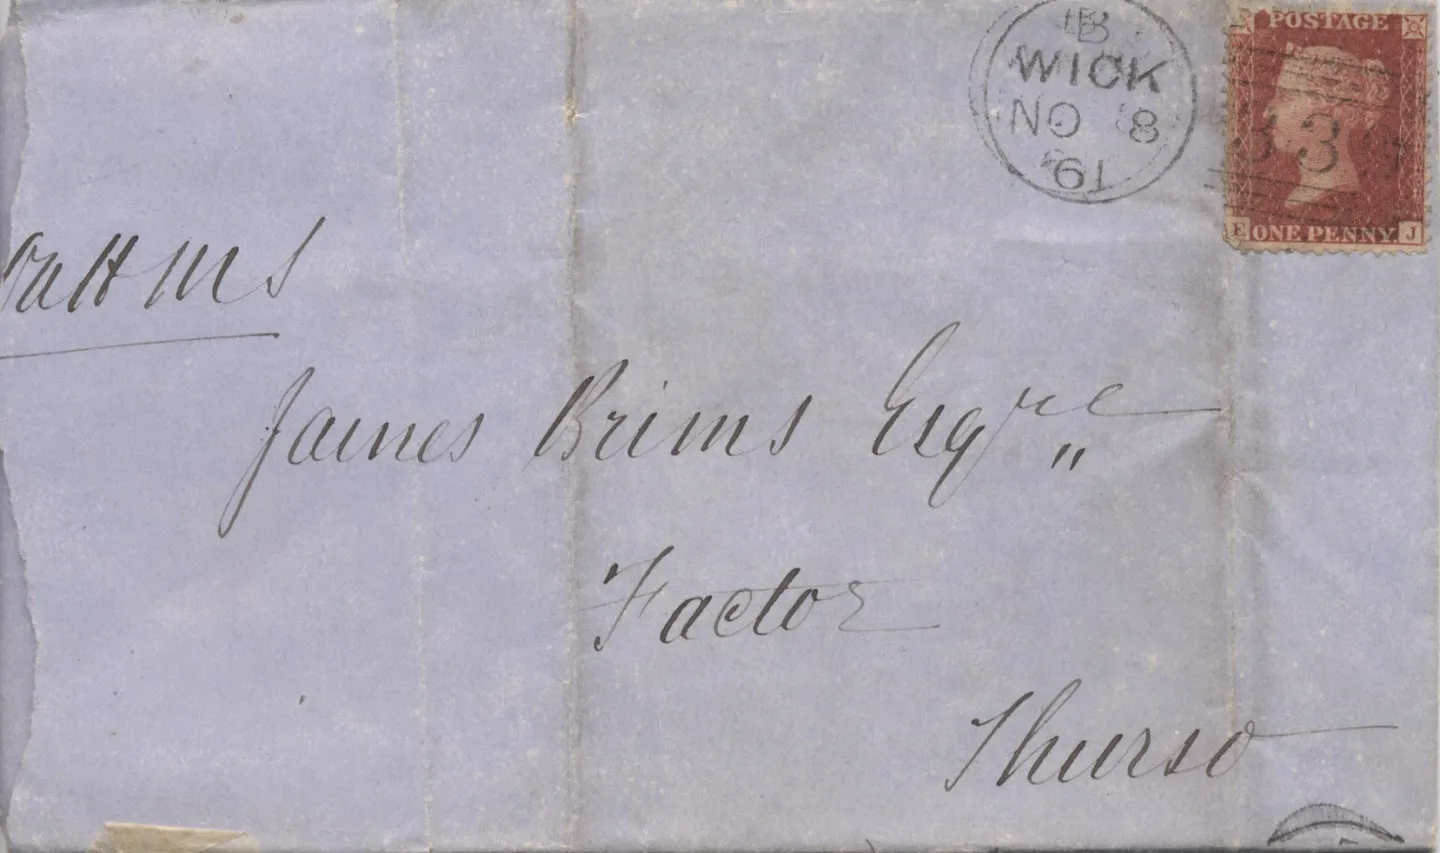 B
WICK
NO 8
61
POSTAGE
33
E ONE PENNY J
On H M S
James Brims Esqre
Factor
Thurso